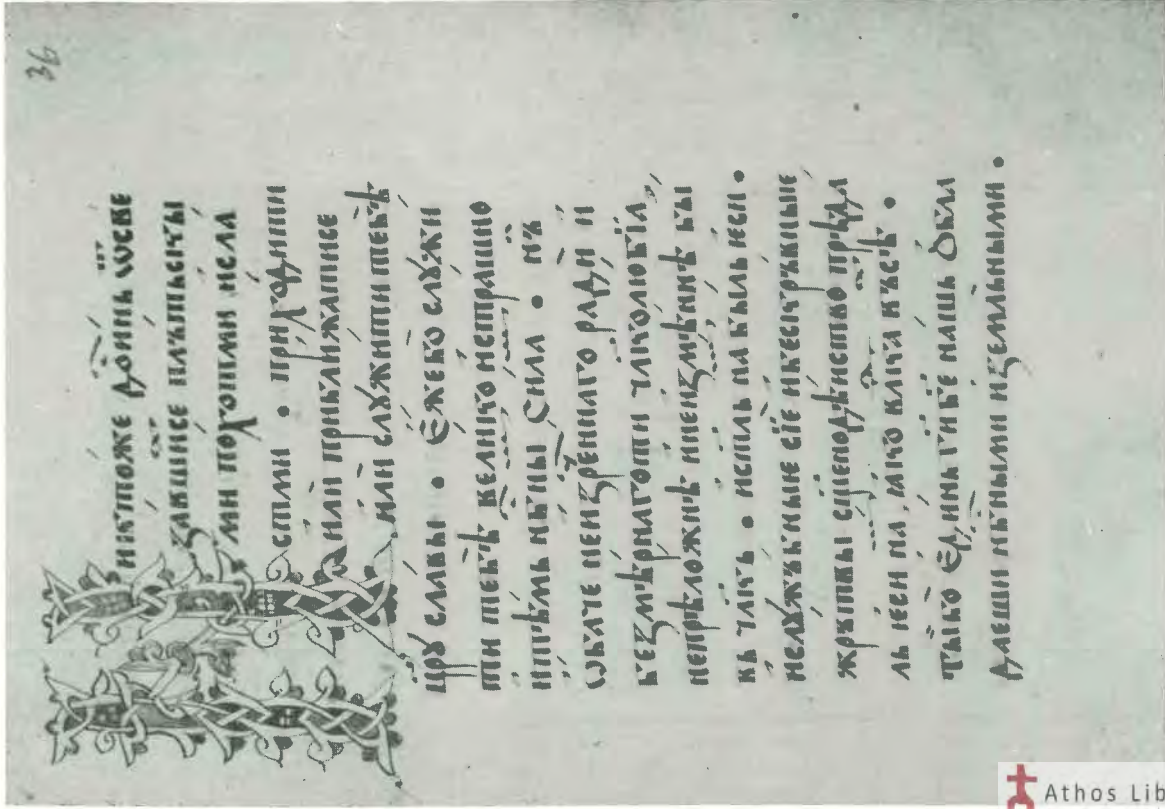 36
никтоже до́инь ѿсве
завшисе пльтьскы
ми похотми исла
стми • приходити
или приближатисе
или слꙋжити тебѣ
цр҃ꙋ славы • ежебо слꙋжи
ти тебѣ велико истрашно
итѣмь нб҃ны сила • нь
ѡбаче неизренⸯнаго ради и
безмѣрнаготи чл҃колюбїа
непрѣложнѣ инеизмѣннѣ бы
вь чл҃кь • истль набыль ѥси •
ислꙋжьбные сїе ибескрьвные
жрьтвы сщ҃енодѣиство прѣда
ль ѥси на, ꙗко влк҃а вьсѣ •
тыбо единь ги҃ бе҃ нашь обла
даеши нб҃ными иземльными •
Athos Lib